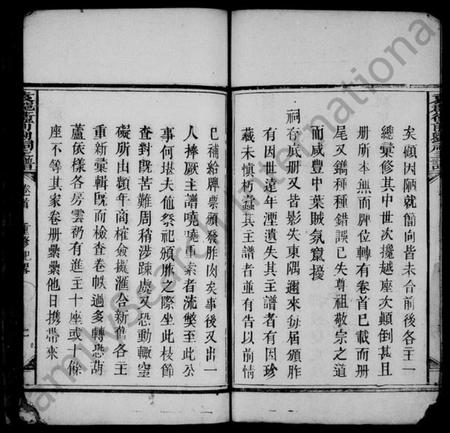 矣顧因陋就簡向皆未合前後各主一
總彙修其中世次攙越座次顛倒甚且
册所本無而牌位轉有卷首已載而册
尾又鐫種種錯誤已失尊祖敬宗之道
而咸豐中葉賊氛竄擾
祠存底册又昔影失東隅邇來每屆頒胙
有因世遠年湮遺失其主譜者有因珍
藏未慎朽蠹其主譜者並有告以前情
已補給牌票頒發胙肉矣事後又出一
人捧厥主譜曉曉重索者流弊至此公
事何堪夫值祭祀頒胙之際坐此枝節
查對既苦難周稍涉疎虞又恐動輒窒
礙所由頻年商榷僉擬滙合新舊各主
重新彙輯既而檢查卷帙過多轉恐葫
蘆依樣各房雲礽有進主十座或十餘
座不等其家卷册纍纍他日携帶來
卷首
重修
familysearch International